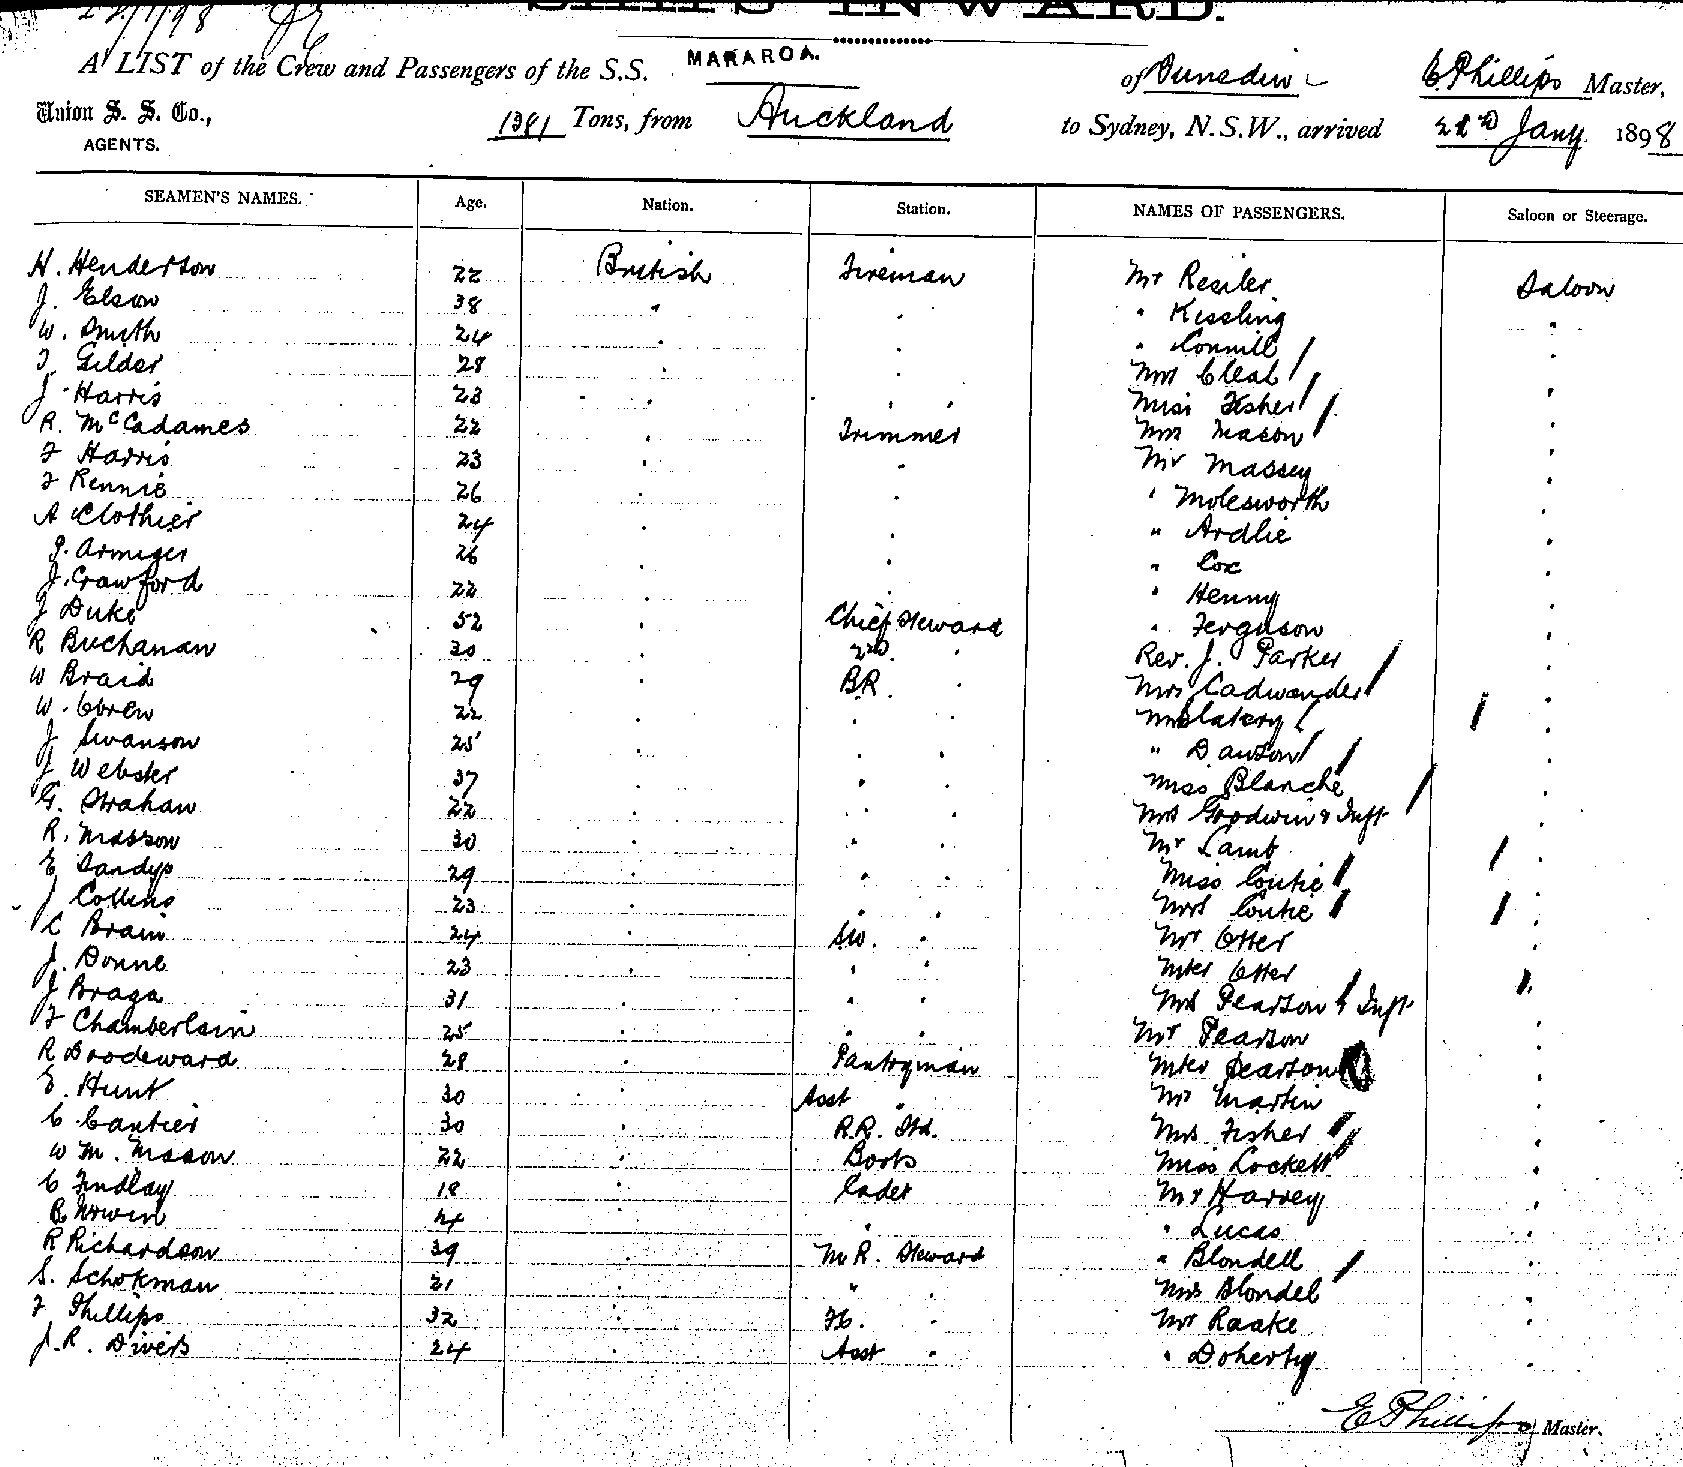 SHIPS INWARD.
A LIST of the Crew and Passengers of the S.S. MARAROA. of Dunedin E Phillips Master,
Union S. S. Co., AGENTS. 1381 Tons, from Auckland to Sydney, N.S.W., arrived Jany 1898
SEAMEN'S NAMES. Age. Nation. Station. NAMES OF PASSENGERS. Saloon or Steerage.
H. Henderson 22 British Fireman Mr Saloon
J. Elson 38 " " " Kissling "
W. Smith 24 " " " "
Gilder 28 " " Mrs Cleal "
J Harris 23 " " Miss Fisher "
R. McCadames 22 " Trimmer Mrs Mason "
F Harris 23 " " Mr Massey "
F Rennie 26 " " " Molesworth "
A Clothier 24 " " " Ardlie "
Armiger 26 " " " Cox "
J. Crawford 22 " " " Henny "
J Duke 52 " Chief Steward " Ferguson "
R Buchanan 30 " 2nd " Rev. J. Parker "
W Braid 29 " B.R. " Mrs Cadwander "
W. 22 " " " Mrs Slatery "
J Swanson 25 " " " " Dawson "
J Webster 37 " " " Miss Blanche "
G. Strahan 22 " " " Mrs Goodwin & Inft "
R. Masson 30 " " " Mr Lamb "
E Sandys 29 " " " Miss Coutie "
J Collins 23 " " " Mrs Coutie "
C Brain 24 " Sw. " Mr Otter "
J. Donne 23 " " " Mter Otter "
J Braga 31 " " " Mrs Pearson & Inft "
F Chamberlain 25 " " " Mr Pearson "
R Broodeward 28 " Pantryman Mter Pearson "
E. Hunt 30 " Asst " Mr Martin "
C Cantier 30 " R.R. Std. Mrs Fisher "
W M. Mason 22 " Boots Miss Lockett "
C Findlay 18 " Cadet Mr Harvey "
" " " Lucas "
R Richardson 39 " M.R. Steward " Blondell "
S. Schokman 21 " " " Mrs Blondel "
F Phillips 32 " " Mr Raake "
J. R. Divers 24 " Asst " " Doherty "
E Phillips Master.